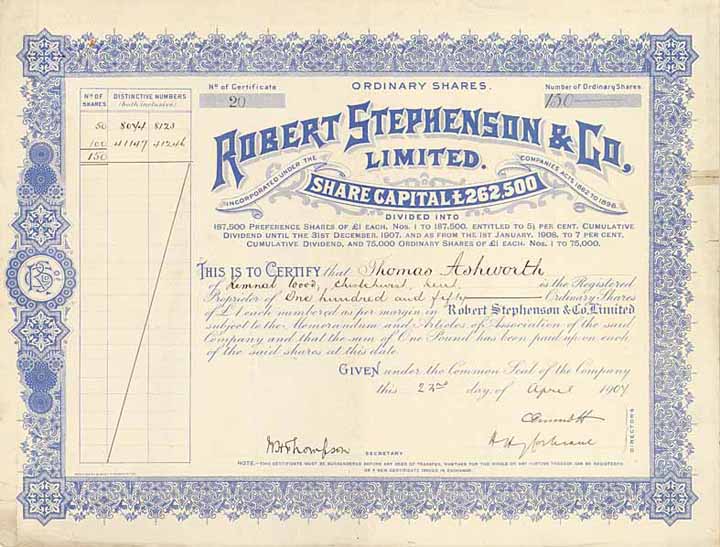 Nº of Certificate
20
ORDINARY SHARES.
Number of Ordinary Shares
150
Nº OF SHARES
DISTINCTIVE NUMBERS
(both inclusive)
50 8074 8123
100 41147 41246
150
ROBERT STEPHENSON & Co,
LIMITED.
INCORPORATED UNDER THE COMPANIES ACTS, 1862 TO 1898.
SHARE CAPITAL £262,500
DIVIDED INTO
187,500 PREFERENCE SHARES OF £1 EACH, NOS. 1 TO 187,500, ENTITLED TO 5½ PER CENT. CUMULATIVE
DIVIDEND UNTIL THE 31ST DECEMBER, 1907, AND AS FROM THE 1ST JANUARY, 1908, TO 7 PER CENT.
CUMULATIVE DIVIDEND, AND 75,000 ORDINARY SHARES OF £1 EACH, NOS. 1 TO 75,000.
THIS IS TO CERTIFY that Thomas Ashworth
of Kemnal Wood, Chislehurst, Kent is the Registered
Proprietor of One hundred and fifty Ordinary Shares
of £1 each numbered as per margin in Robert Stephenson & Co, Limited
subject to the Memorandum and Articles of Association of the said
Company and that the sum of One Pound has been paid up on each
of the said shares at this date.
GIVEN under the Common Seal of the Company
this 22nd day of April 1907
DIRECTORS
W H Thompson
SECRETARY
NOTE.—THIS CERTIFICATE MUST BE SURRENDERED BEFORE ANY DEED OF TRANSFER, WHETHER FOR THE WHOLE OR ANY PORTION THEREOF CAN BE REGISTERED
OR A NEW CERTIFICATE ISSUED IN EXCHANGE.